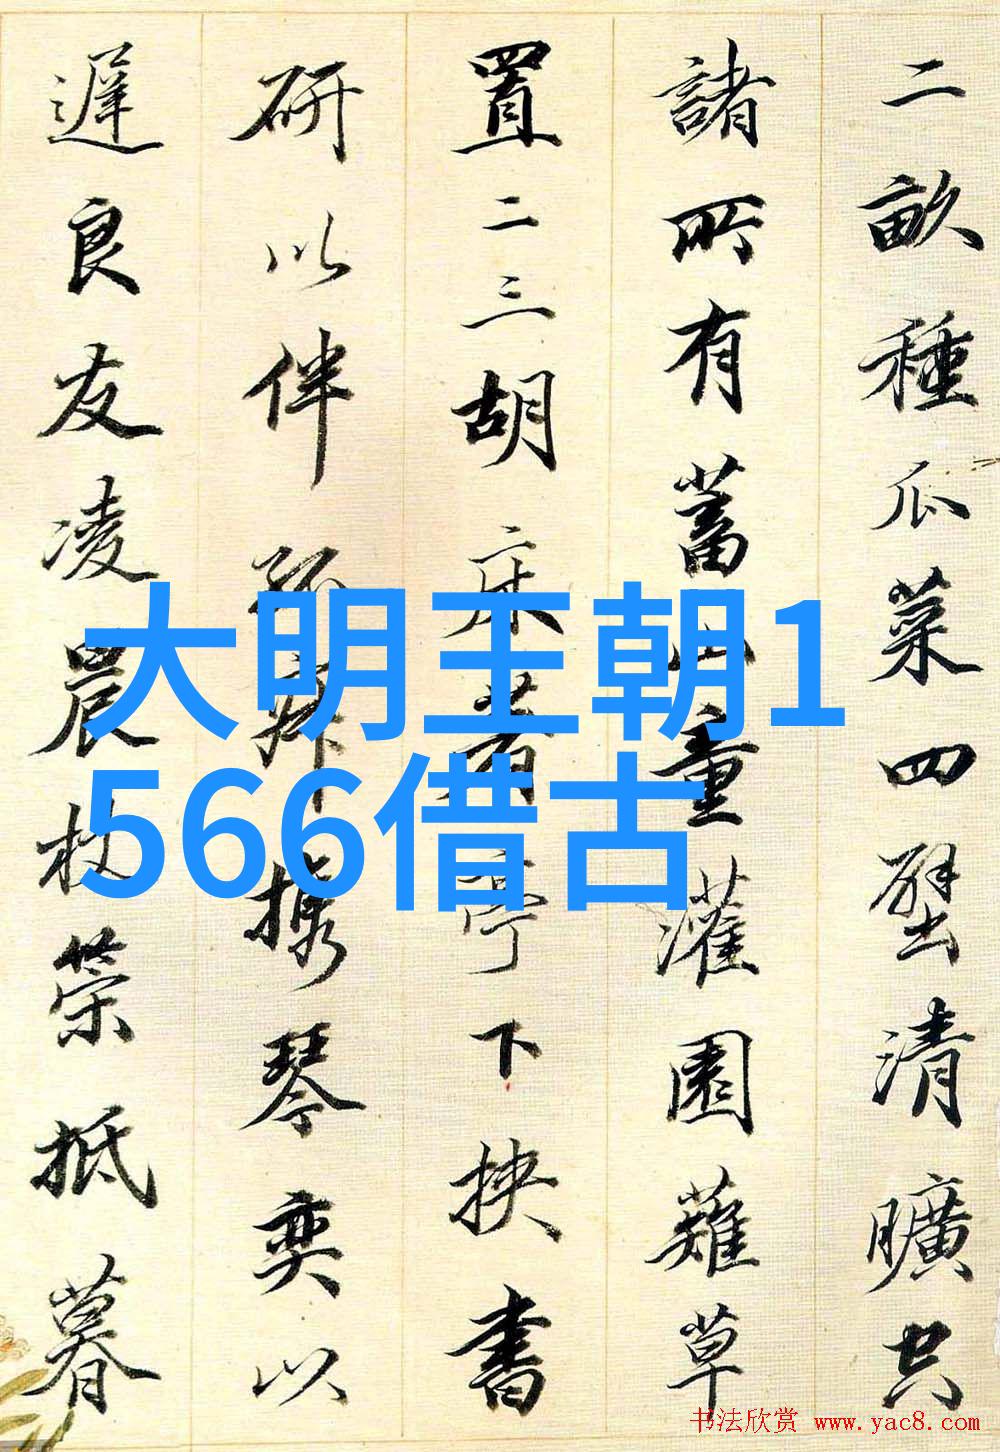 二畝種瓜菜四壁清曠空
諸所有蓄山童灌園薙草
置二三胡床着亭下挾書
研以伴孤寂攜琴奕以
遲良友凌晨杖策抵暮
大明王朝1
566借古
书法欣赏 www.yac8.com